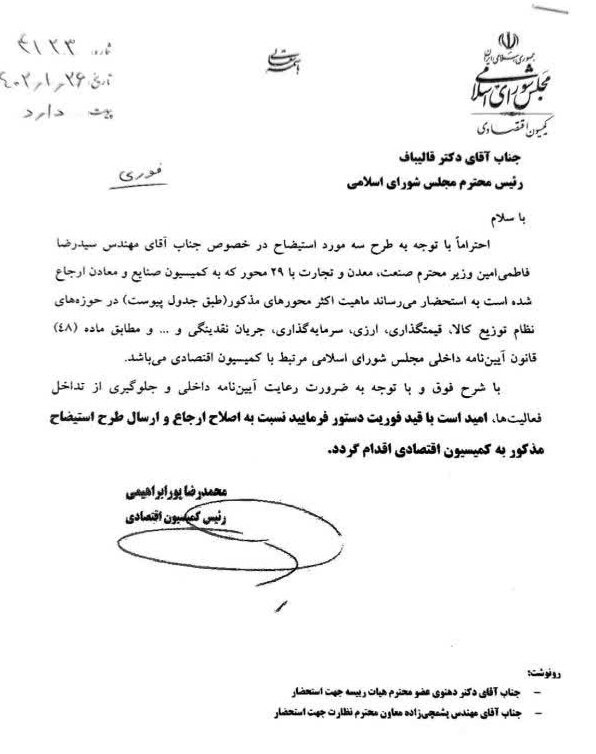 جمهوری اسلامی ایران
مجلس شورای اسلامی
کمیسیون اقتصادی
باسمه تعالی
شماره: ۳۱۲۳
تاریخ: ۴۰۲/۱/۲۶
پیوست: دارد
فوری
جناب آقای دکتر قالیباف
رئیس محترم مجلس شورای اسلامی
با سلام
احتراماً با توجه به طرح سه مورد استیضاح در خصوص جناب آقای مهندس سیدرضا
فاطمی‌امین وزیر محترم صنعت، معدن و تجارت با ۲۹ محور که به کمیسیون صنایع و معادن ارجاع
شده است به استحضار می‌رساند ماهیت اکثر محورهای مذکور(طبق جدول پیوست) در حوزه‌های
نظام توزیع کالا، قیمتگذاری، ارزی، سرمایه‌گذاری، جریان نقدینگی و ... و مطابق ماده (۴۸)
قانون آیین‌نامه داخلی مجلس شورای اسلامی مرتبط با کمیسیون اقتصادی می‌باشد.
با شرح فوق و با توجه به ضرورت رعایت آیین‌نامه داخلی و جلوگیری از تداخل
فعالیت‌ها، امید است با قید فوریت دستور فرمایید نسبت به اصلاح ارجاع و ارسال طرح استیضاح
مذکور به کمیسیون اقتصادی اقدام گردد.
محمدرضا پورابراهیمی
رئیس کمیسیون اقتصادی
رونوشت:
– جناب آقای دکتر دهنوی عضو محترم هیات رییسه جهت استحضار
– جناب آقای مهندس پشمچی‌زاده معاون محترم نظارت جهت استحضار